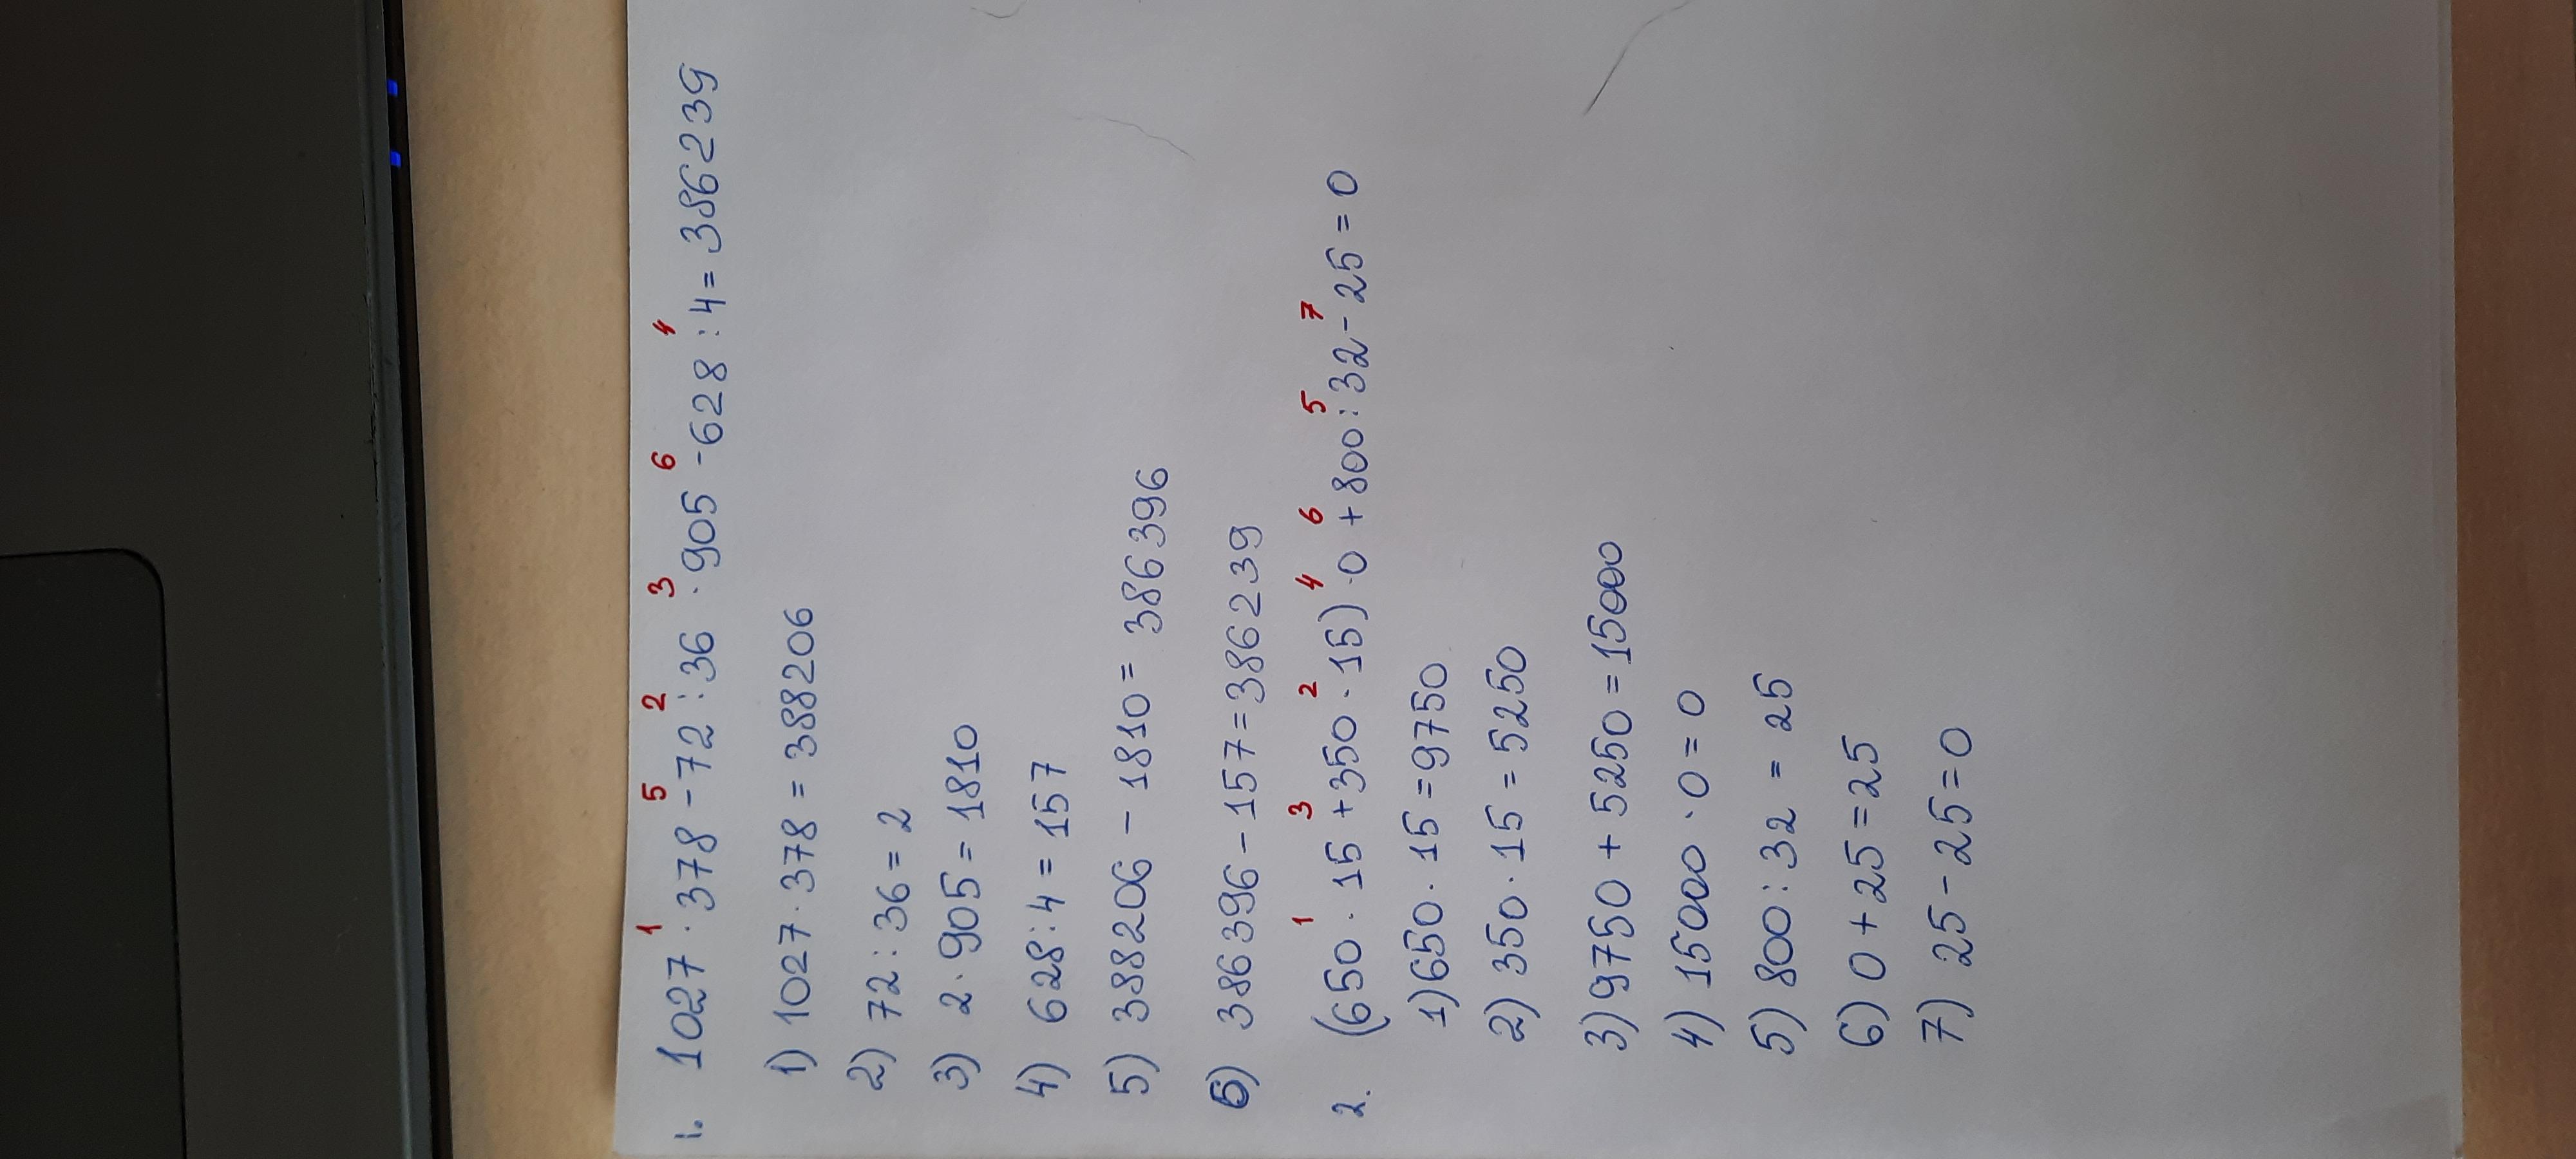 1. 1027 · 378 - 72 : 36 · 905 - 628 : 4 = 386239
1 5 2 3 6 4
1) 1027 · 378 = 388206
2) 72 : 36 = 2
3) 2 · 905 = 1810
4) 628 : 4 = 157
5) 388206 - 1810 = 386396
6) 386396 - 157 = 386239
1 3 2 4 6 5 7
2. (650 · 15 + 350 · 15) · 0 + 800 : 32 - 25 = 0
1) 650 · 15 = 9750
2) 350 · 15 = 5250
3) 9750 + 5250 = 15000
4) 15000 · 0 = 0
5) 800 : 32 = 25
6) 0 + 25 = 25
7) 25 - 25 = 0